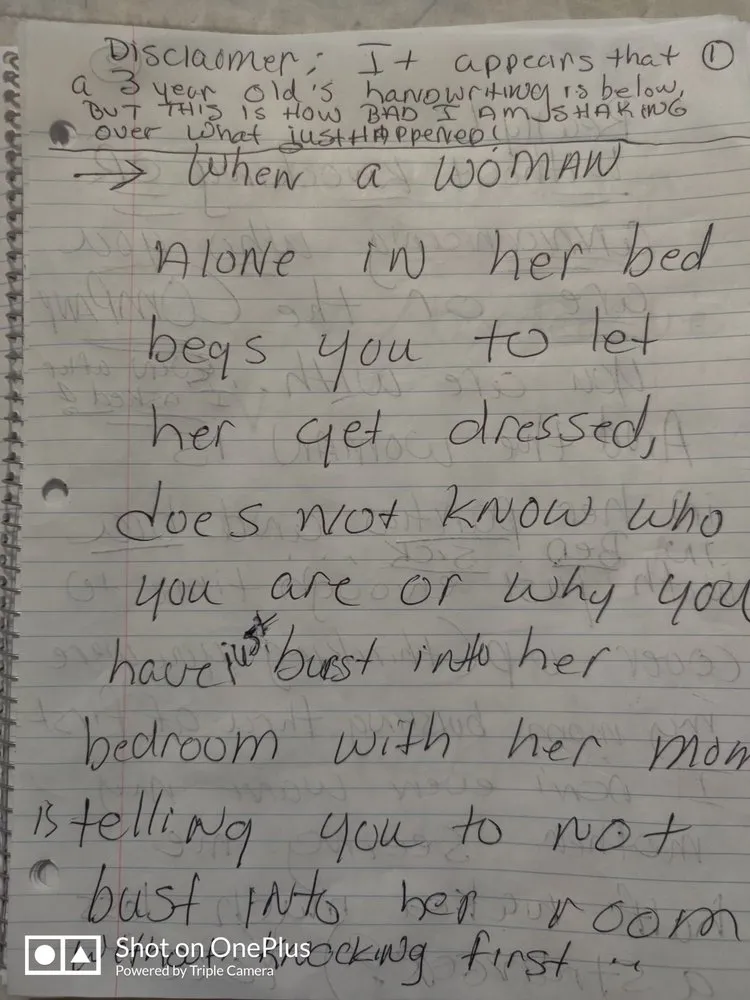 Disclaomer; It appears that ①
a 3 year old's handwriting is below,
BUT THIS IS HOW BAD I AM SHAKING
over what just HAppeneD!
→ When a WOMAN
Alone in her bed
begs you to let
her get dressed,
does not know who
you are or why you
have just burst into her
bedroom with her mom
is telling you to not
bust into her room
without knocking first ..
Shot on OnePlus
Powered by Triple Camera